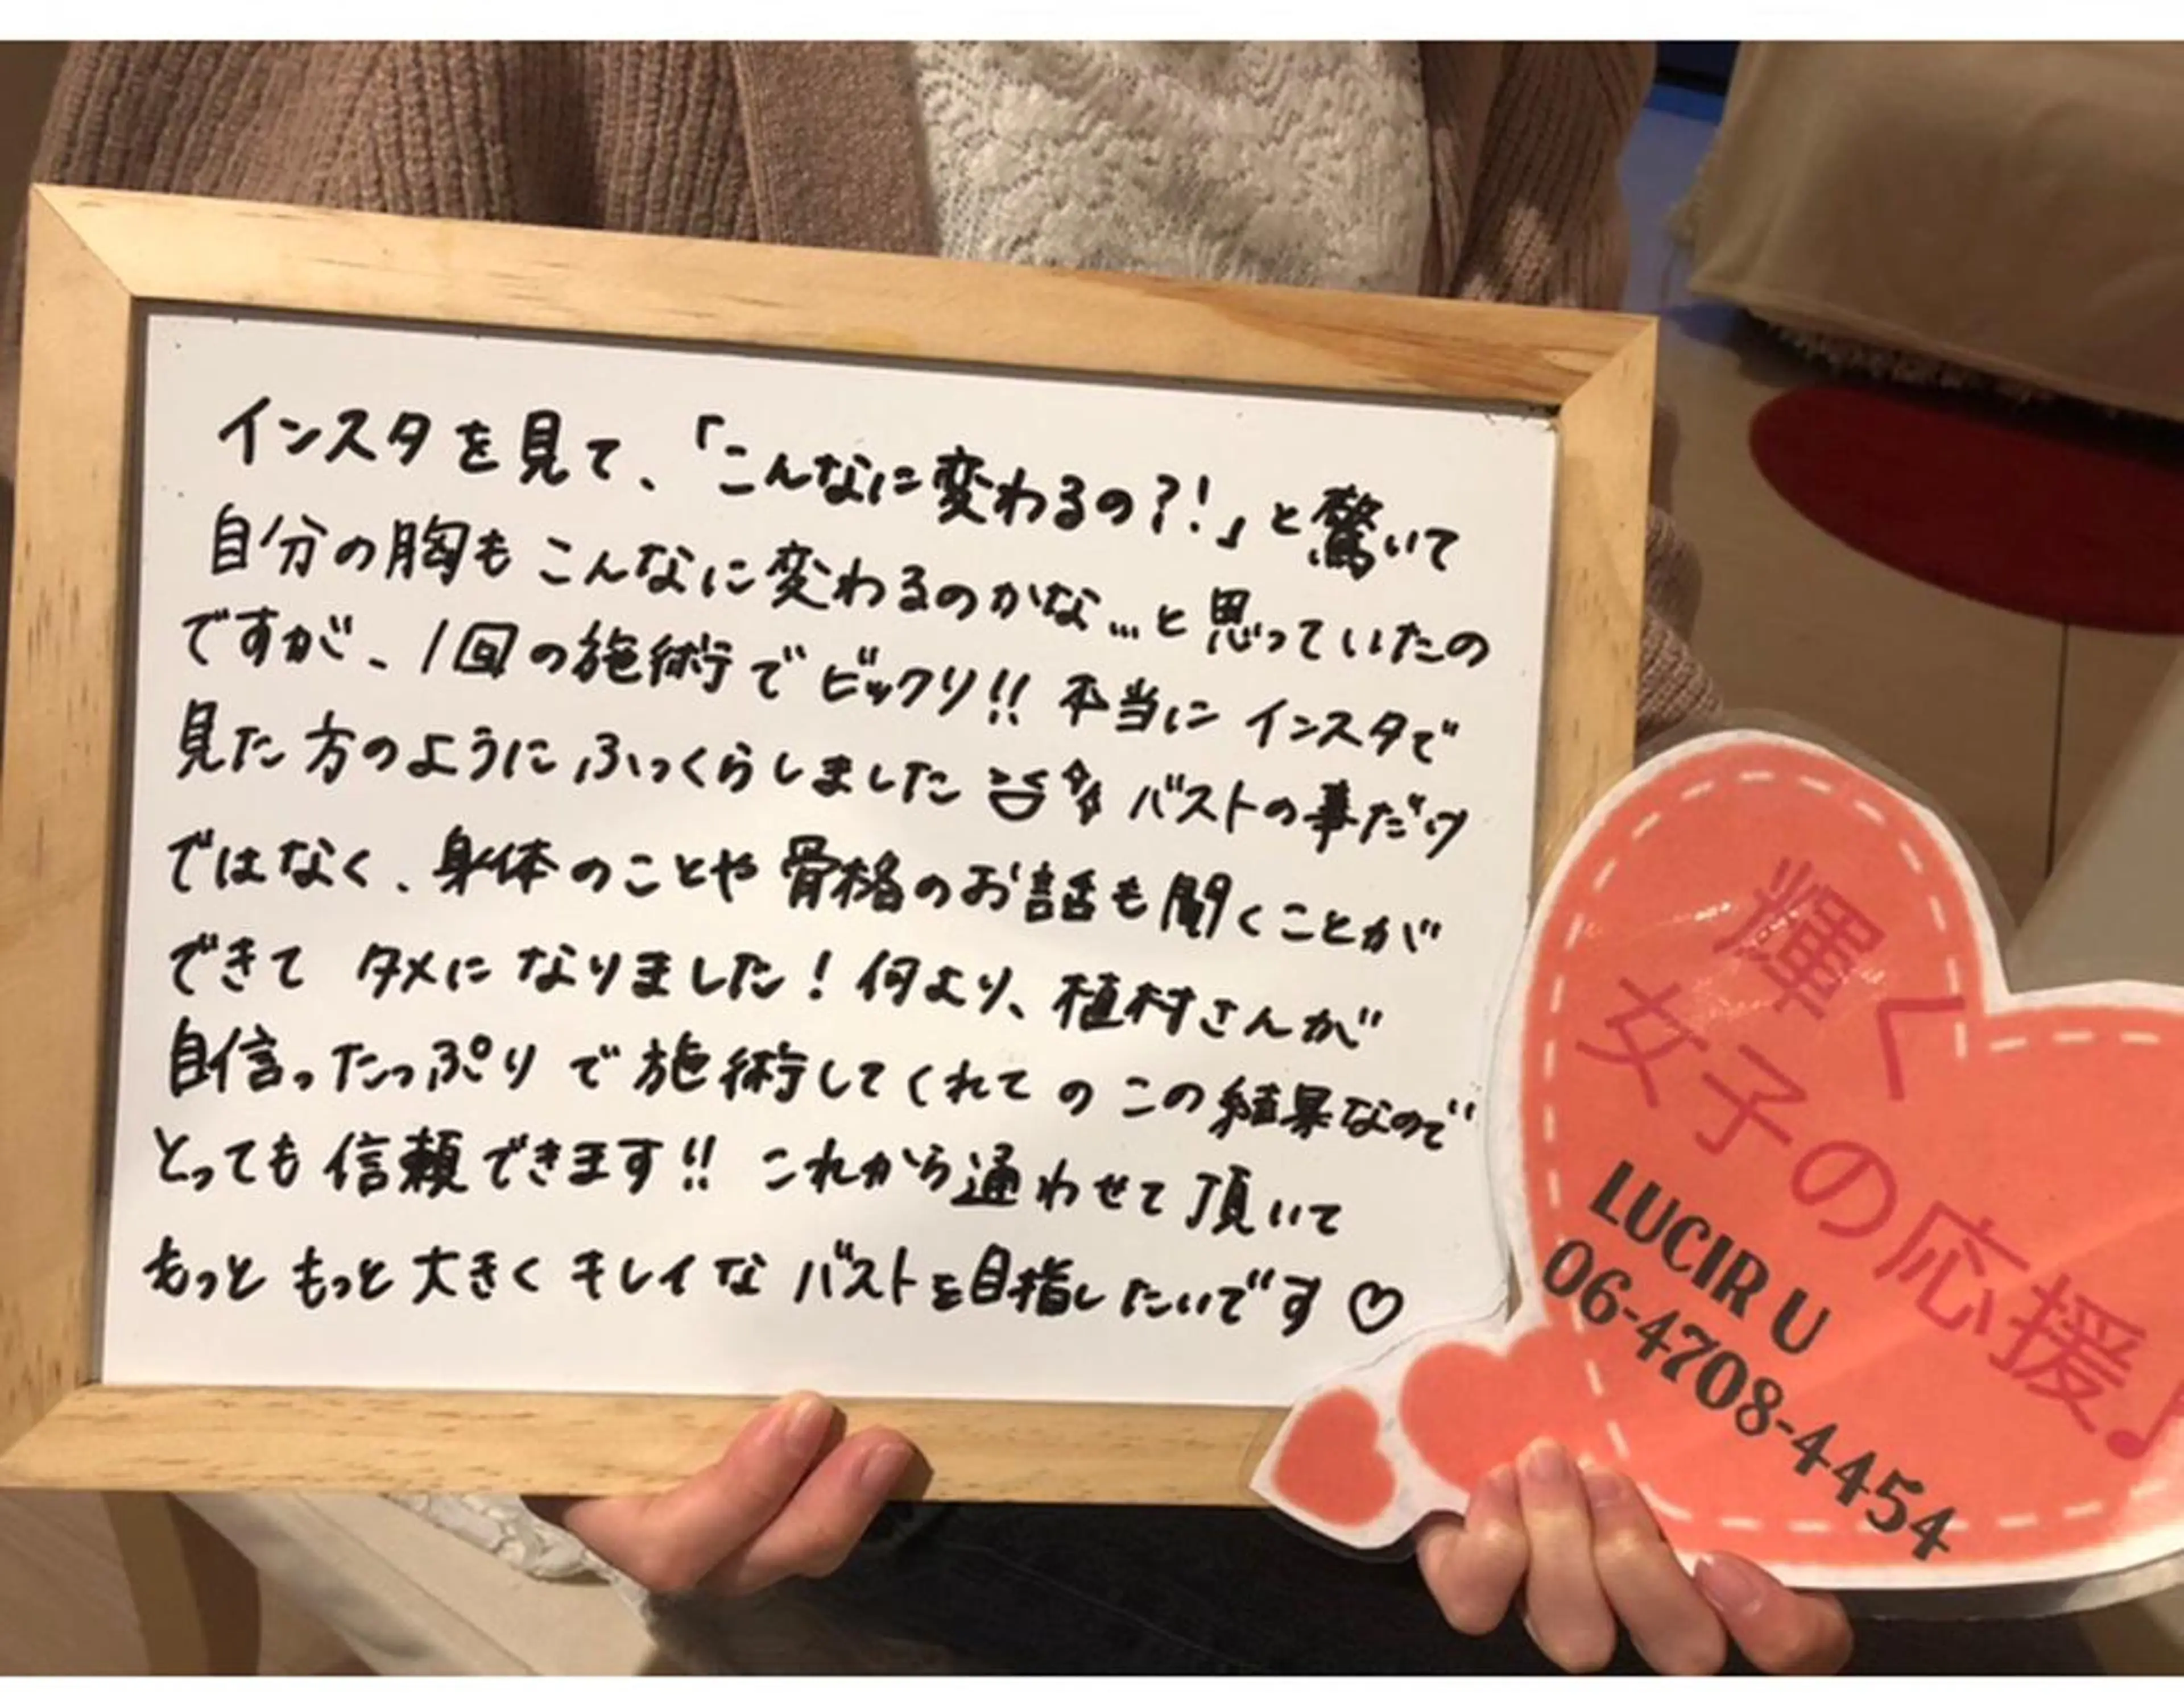 インスタを見て、「こんなに変わるの?!」と驚いて
自分の胸もこんなに変わるのかな…と思っていたの
ですが、1回の施術でビックリ!! 本当にインスタで
見た方のようにふっくらしました バストの事だけ
ではなく、身体のことや骨格のお話も聞くことが
できて タメになりました! 何より、植村さんが
自信ったっぷりで施術してくれてのこの結果なので
とっても信頼できます!! これから通わせて頂いて
もっともっと大きくキレイなバストを目指したいです♡
輝く
女子の応援♩
LUCIR U
06-4708-4454